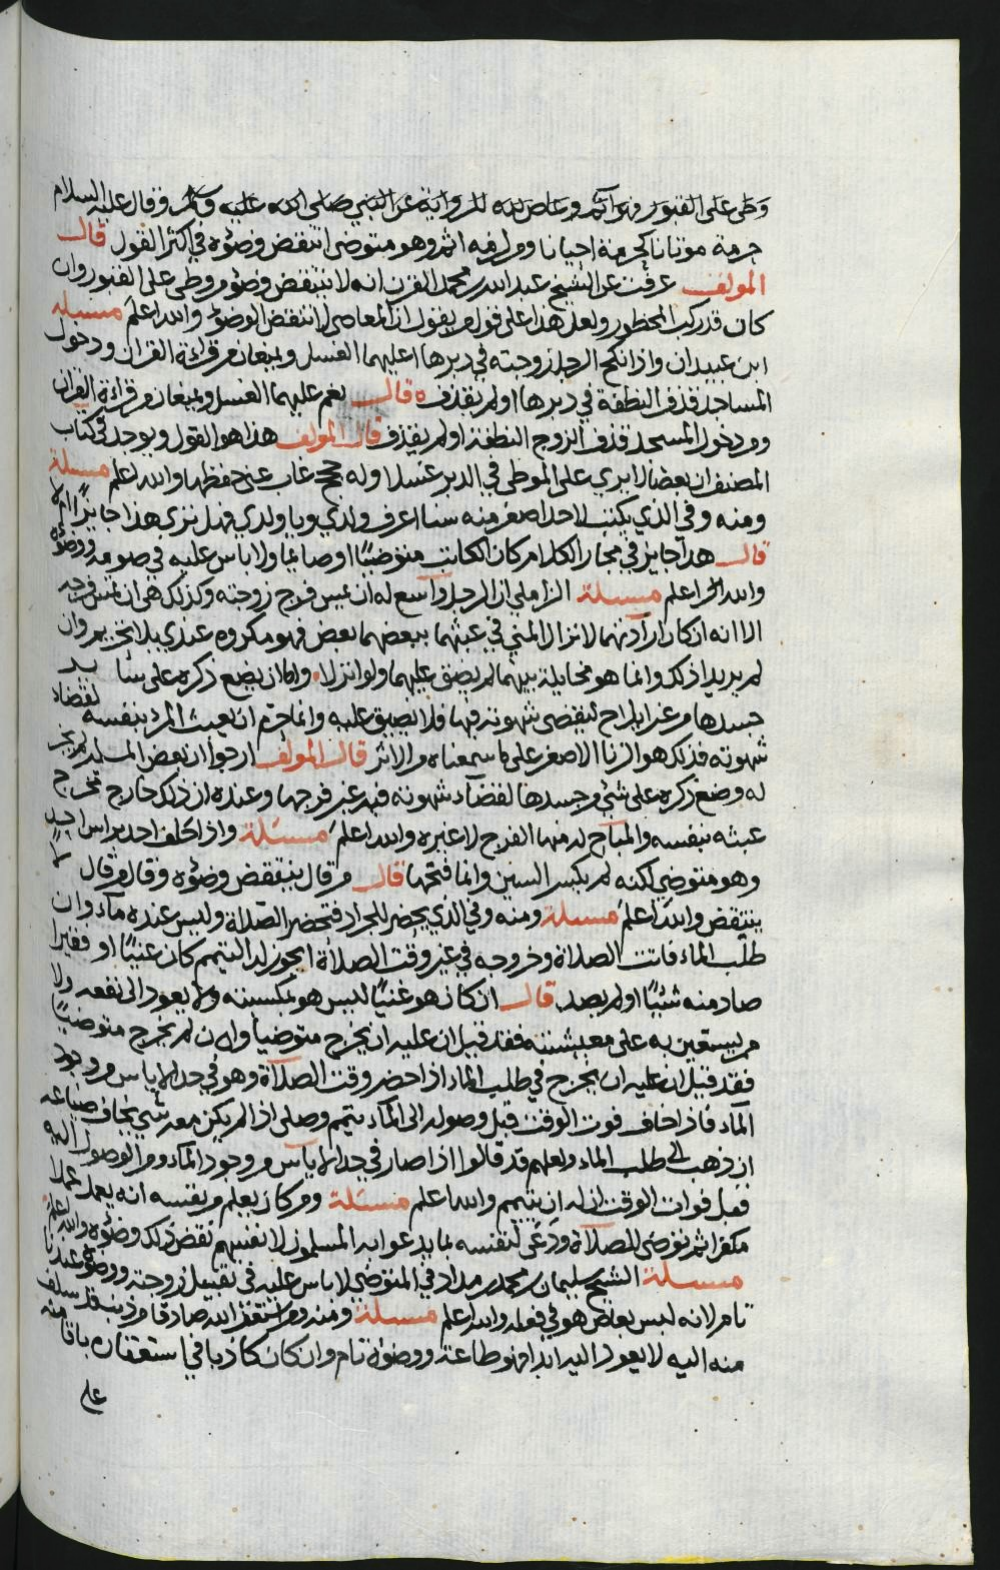 وطى على القبور فهو آثم وعاص لله للرواية عن النبي صلى الله عليه وسلم وقال عليه السلام
حرمة موتانا كحرمة احيانا ومن لزمه اثم وهو متوضي انتقض وضوءه في اكثر القول قال
المولف عرفت عن الشيخ عبدالله بن محمد القرن انه لا ينتقض وضوء من وطى على القبور وان
كان قد ركب المحظور ولعل هذا على قول من يقول ان المعاصي لا تنقض الوضوء والله اعلم مسئلة
ابن عبيدان واذا نكح الرجل زوجته في دبرها اعليهما الغسل ويمنعان من قراءة القران ودخول
المساجد قذف النطفة في دبرها اولم يقذف قال نعم عليهما الغسل ويمنعان من قراءة القران
ومن دخول المسجد قذف الزوج النطفة اولم يقذف قال المولف هذا هو القول ويوجد في كتاب
المصنف ان بعضا لا يرى على الموطى في الدبر غسلا وله حجج غاب عني حفظها والله اعلم مسئلة
ومنه وفي الذي يكتب لاحد اصغر منه سنا اعرف ولدي ويا ولدي فهل ترى هذا جايزا ام لا
قال هذا جايز في مجاز الكلام كان الكاتب متوضيًا او صايما ولا باس عليه في صومه ووضوءه
والله اعلم مسئلة الزاملي ان الرجل واسع له ان يمس فرج زوجته وكذلك هي ان تمس فرجه
الا انه ان كان ارادتهما لانزال المني في عبثهما ببعضهما بعض فهو مكروه عندي بلا تحريم وان
لم يريدا ذلك وانما هو مخايلة بينهما لم يضق عليهما ولو انزلا واما ان يضع ذكره على شيء من
جسدها من غير ايلاج ليقضي شهوته فيها فلا يضيق عليه وانما حرم ان يعبث المرء بنفسه لقضاء
شهوته فذلك هو الزنا الاصغر على ما سمعناه من الاثر قال المولف ارجوا ان بعض المسلمين لم يجز
له وضع ذكره على شيء من جسدها لقضاء شهوته فيه غير فرجها وعنده ان ذلك خارج مخرج
عبثه بنفسه والمباح له منها الفرج لا غيره والله اعلم مسئلة واذا حلف احد براس احد
وهو متوضي لكنه لم يكسر السين وانما فتحها قال من قال ينتقض وضوءه وقال من قال لا
ينتقض والله اعلم مسئلة ومنه وفي الذي يحضر للجراد فتحضر الصلاة وليس عنده ماء وان
طلب الماء فاتت الصلاة وخروجه في غير وقت الصلاة ايجوز له التيمم كان غنيًا او فقيرا
صاد منه شيئًا اولم يصد قال ان كان هو غنيًا ليس هو بمكسبته ولا يعود الى نفعه ولا
من يستعين به على معيشته فقد قيل ان عليه ان يخرج متوضيا وان لم يخرج متوضيًا
فقد قيل ان عليه ان يخرج في طلب الماء اذا حضر وقت الصلاة وهو في حد الاياس من وجود
الماء فاذا خاف فوت الوقت قبل وصوله الى الماء تيمم وصلى اذا لم يكن معه شيء يخاف ضياعه
ان ذهب الى طلب الماء ولعلهم قد قالوا اذا صار في حد الاياس من وجود الماء ومن الوصول اليه
قبل فوات الوقت ان له ان يتيمم والله اعلم مسئلة ومن كان يعلم من نفسه انه يعمل عملا
مكفرا ثم توضى للصلاة ودعى لنفسه بما يدعوا به المسلمون لانفسهم نقض ذلك وضوءه والله اعلم
مسئلة الشيخ سليمان بن محمد بن مداد في المتوضي لا باس عليه في تقبيل زوجته ووضوءه عندنا
تام لانه ليس بعاص هو في فعله والله اعلم مسئلة ومنه ومن استغفر الله صادقا من ذنب قد سلف
منه اليه لا يعود اليه ابدا فهو طاعة ووضوءه تام وان كان كاذبا في استغفاره باقا منه
على